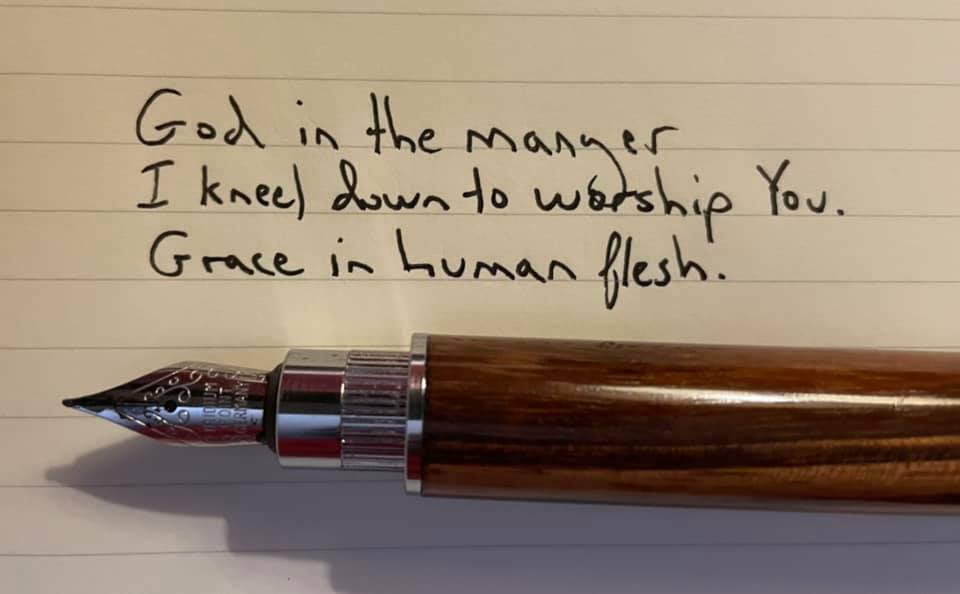 God in the manger
I kneel down to worship You.
Grace in human flesh.
IRIDIUM
POINT
GERMANY